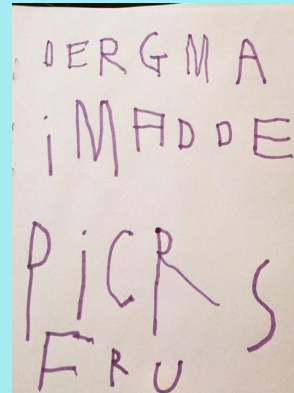 DERGMA
iMADDE
PiCRS
FRU